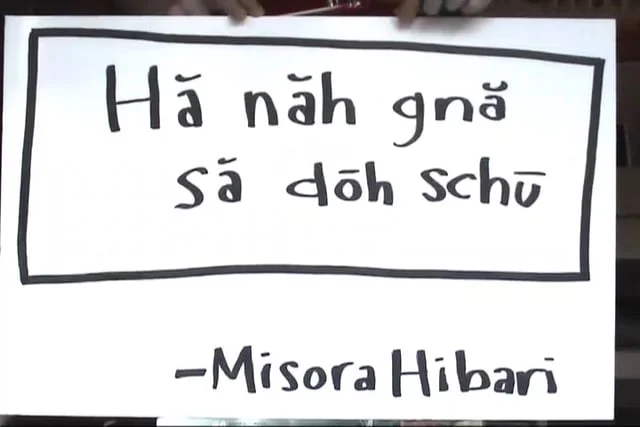 Hă năh gnă
să dōh schū
-Misora Hibari